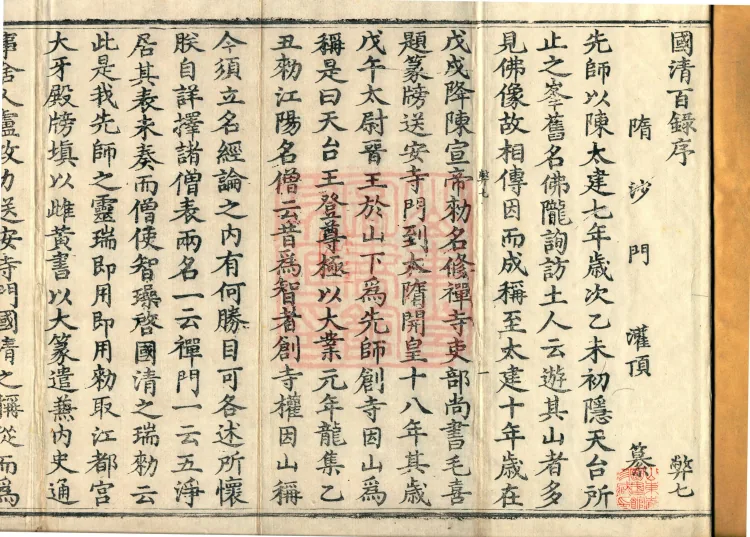 國清百錄序
弊七
隋沙門 灌頂 纂
先師以陳太建七年歲次乙未初隱天台所
止之峯舊名佛隴詢訪土人云遊其山者多
見佛像故相傳因而成稱至太建十年歲在
弊七 一
戊戌降陳宣帝勑名修禪寺吏部尚書毛喜
題篆牓送安寺門到太隋開皇十八年其歲
戊午太尉晉王於山下為先師創寺因山為
稱是曰天台王登尊極以大業元年龍集乙
丑勑江陽名僧云昔為智者創寺權因山稱
今須立名經論之內有何勝目可各述所懷
朕自詳擇諸僧表兩名一云禪門一云五淨
居其表未奏而僧使智璪啓國清之瑞勑云
此是我先師之靈瑞即用即用勑取江都宮
大牙殿牓填以雌黃書以大篆遣兼內史通
事舍人盧政力送安寺門國清之稱從而為